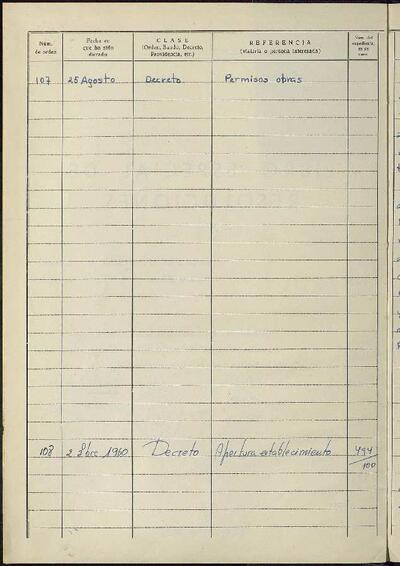 Núm.
de orden
Fecha en
que ha sido
dictado
CLASE
(Orden, Bando, Decreto,
Providencia, etc.)
REFERENCIA
(Materia o persona interesada)
Núm. del
expediente,
en su
caso
107 25 Agosto Decreto Permisos obras
108 2 1960 Decreto Apertura establecimiento
100